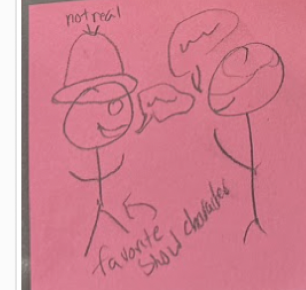 not real
favorite
show character